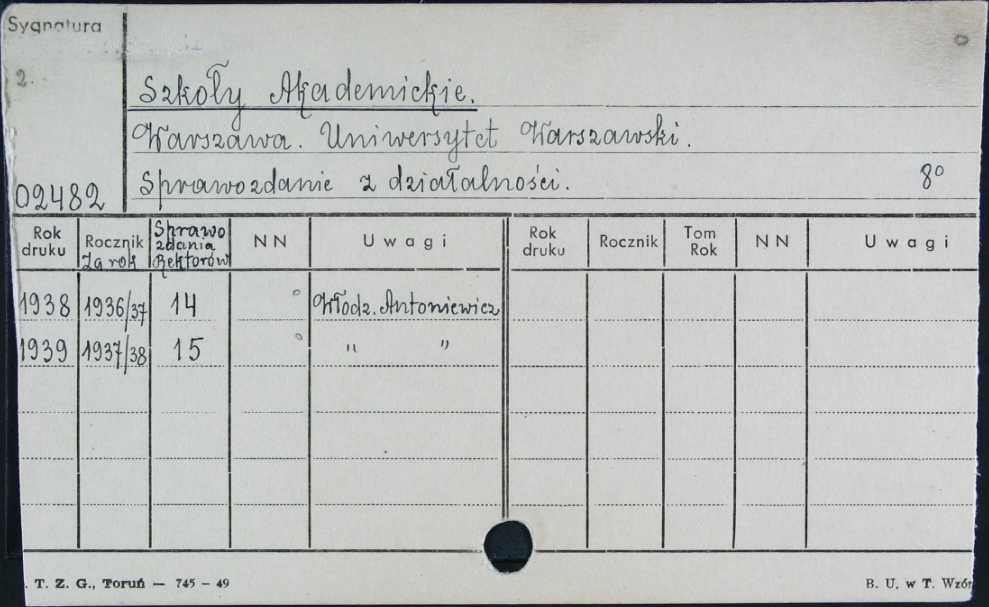 Sygnatura
2.
Szkoły Akademickie.
Warszawa. Uniwersytet Warszawski.
Sprawozdanie z działalności. 8°
02482
Rok druku Rocznik Za rok Sprawozdania Rektorów NN Uwagi Rok druku Rocznik Tom Rok NN Uwagi
1938 1936/37 14 ° Włodz. Antoniewicz
1939 1937/38 15 ° " "
. T. Z. G., Toruń — 745 – 49 B. U. w T. Wzór